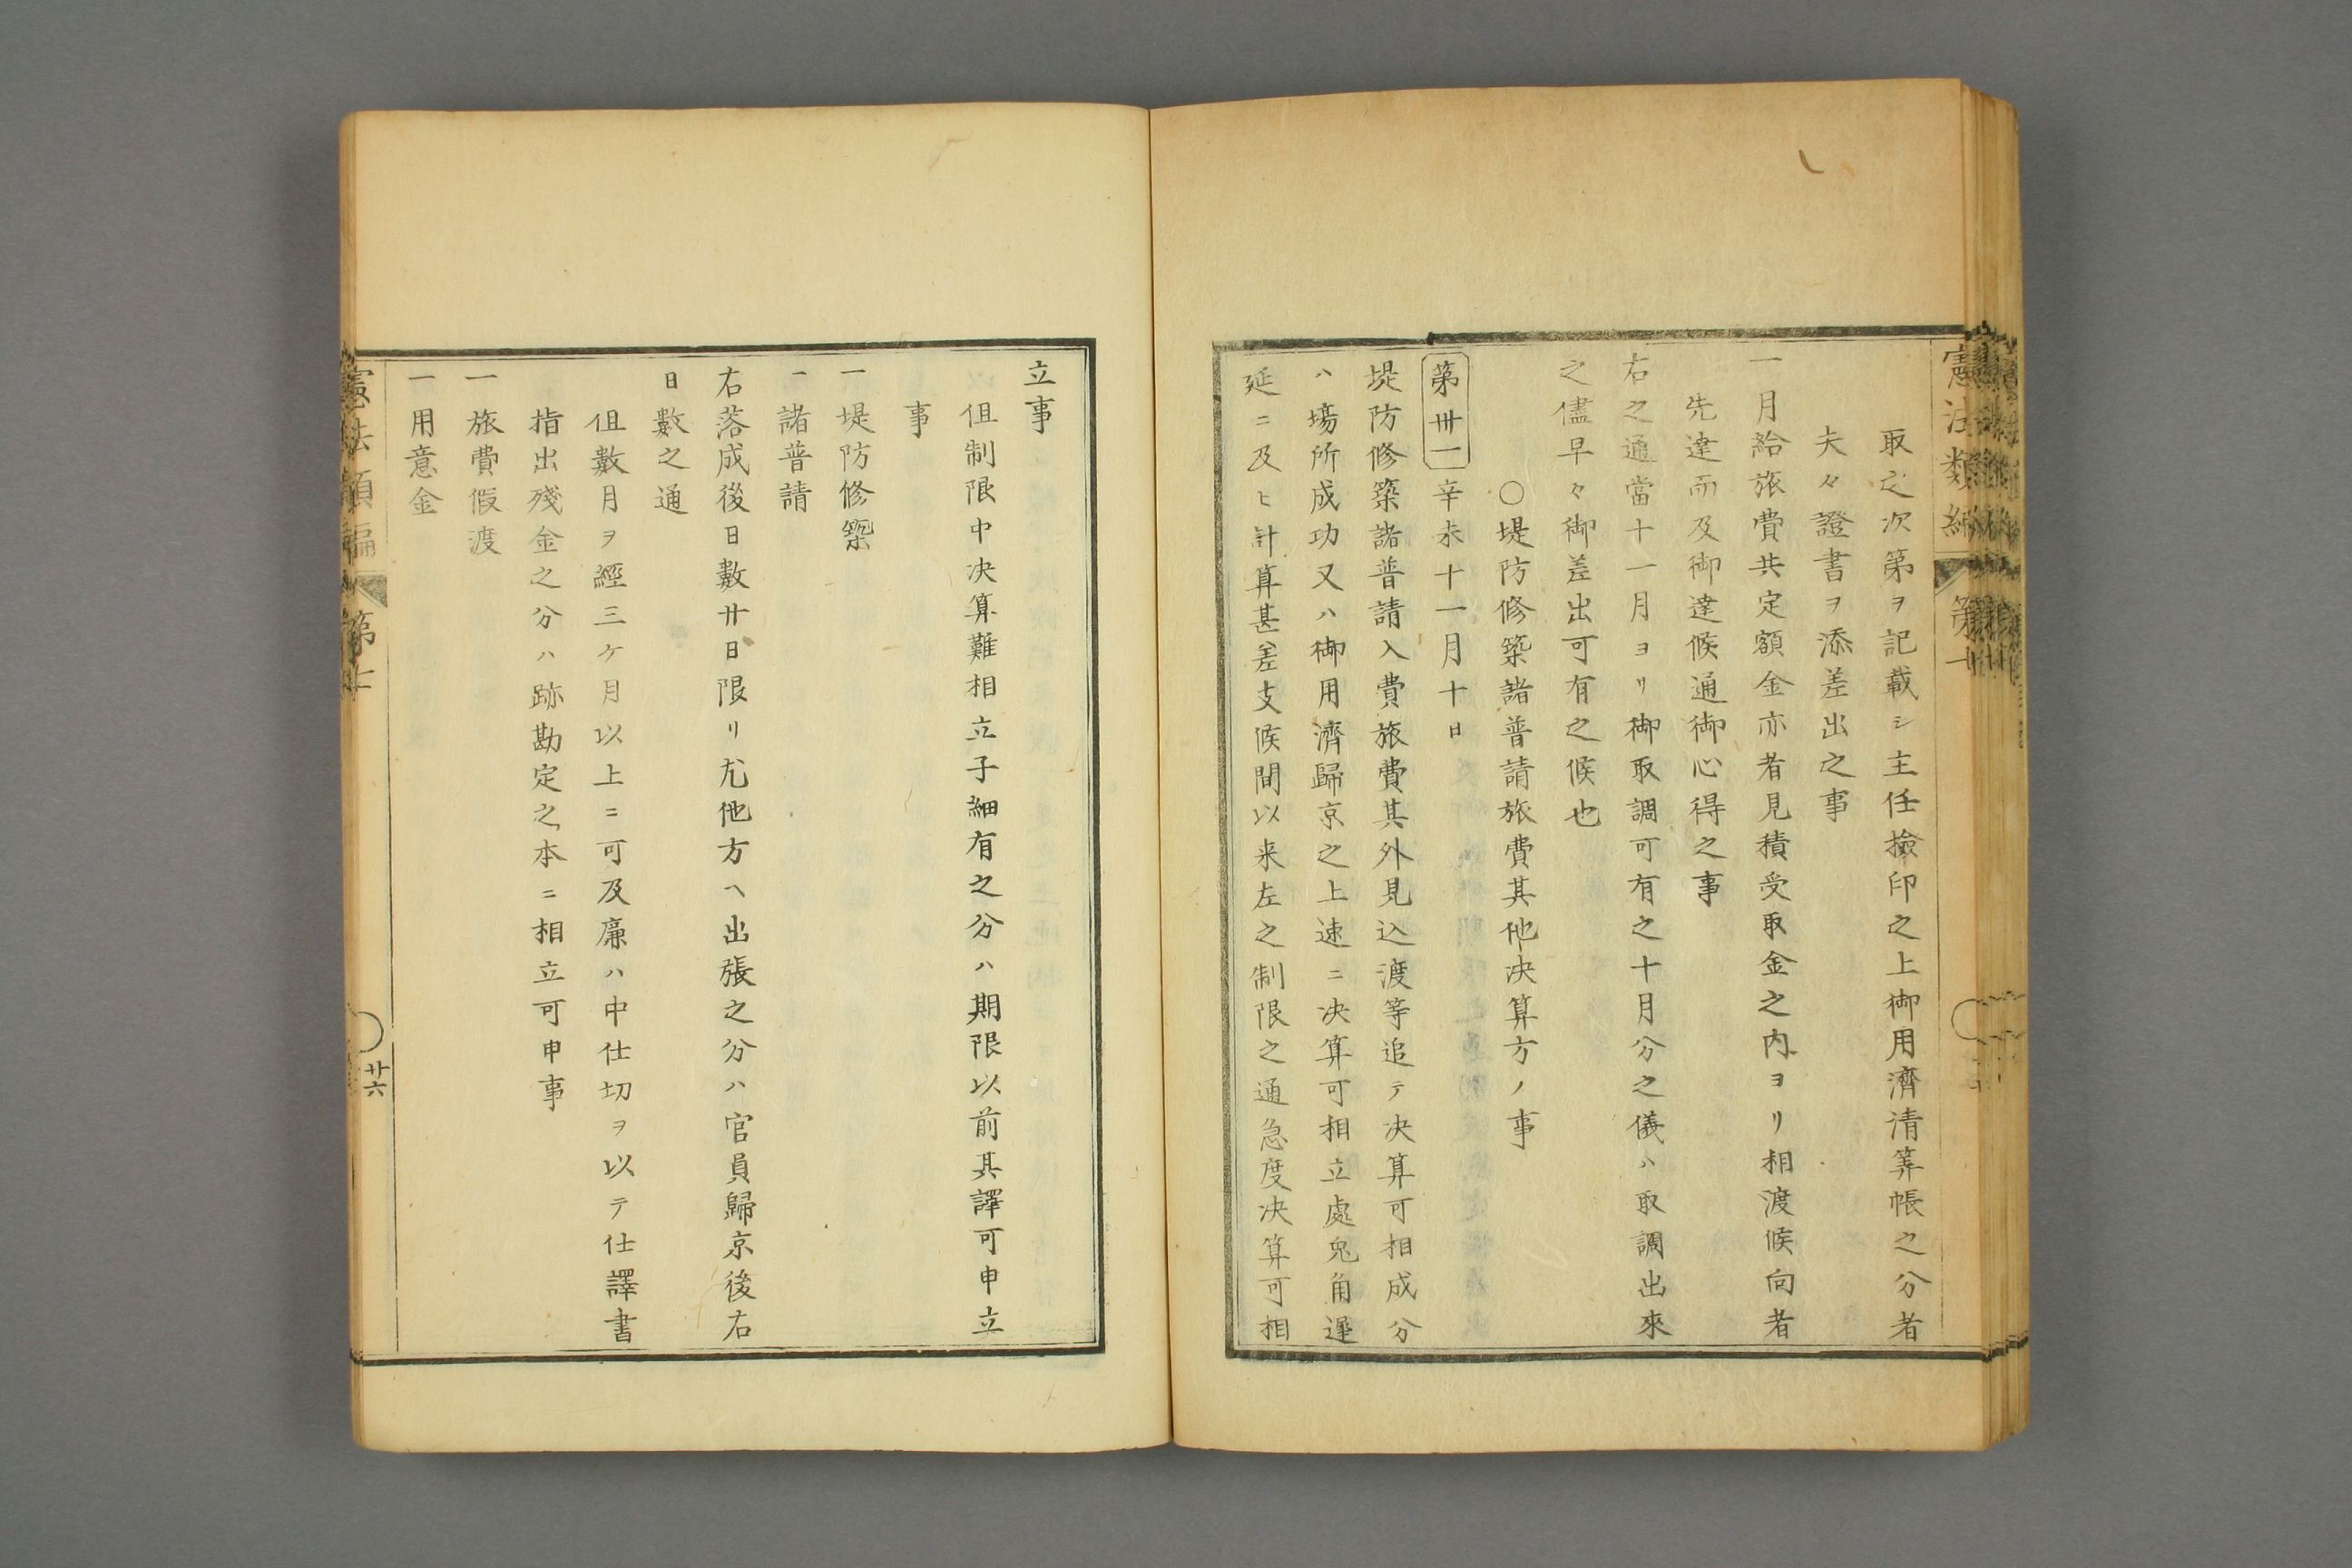 取之次第ヲ記載シ主任撿印之上御用濟清筭帳之分者
夫々證書ヲ添差出之事
一月給旅費共定額金亦者見積受取金之内ヨリ相渡候向者
先達而及御達候通御心得之事
右之通當十一月ヨリ御取調可有之十月分之儀ハ取調出來
之儘早々御差出可有之候也
〇堤防修築諸普請旅費其他决算方ノ事
第卅一 辛未十一月十日
堤防修築諸普請入費旅費其外見込渡等追テ决算可相成分
ハ塲所成功又ハ御用濟歸京之上速ニ决算可相立處兎角遲
延ニ及ヒ計算甚差支候間以来左之制限之通急度决算可相
立事
但制限中决算難相立子細有之分ハ期限以前其譯可申立
事
一堤防修築
一諸普請
右落成後日數廿日限リ尤他方ヘ出張之分ハ官員歸京後右
日數之通
但數月ヲ經三ケ月以上ニ可及廉ハ中仕切ヲ以テ仕譯書
指出殘金之分ハ跡勘定之本ニ相立可申事
一旅費假渡
一用意金
憲法類編 第十
廿六